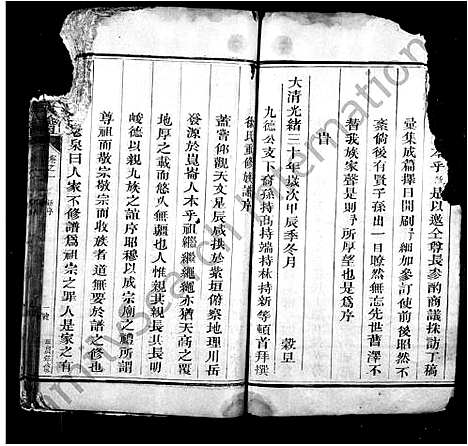 本乎是以邀仝尊長參酌商議採訪丁稿
彙集成篇擇日開刷細加參訂使前後昭然不
紊倘後有賢子孫出一目瞭然無忘先世蓄澤不
替我族家聲是則予所厚望也是爲序
旹
大清光緒三十年歲次甲辰季冬月 穀旦
九德公支下裔孫持高持端持林持新等頓首拜撰
徐氏重修族譜序
蓋嘗仰觀天文星辰咸拱於紫垣俯察地理川岳
發源於崑崙人本乎祖繼繼繩繩亦猶天高之覆
地厚之載而悠久無疆也人惟親其親長其長明
峻德以親九族之誼序昭穆以成宗廟之禮所謂
尊祖而敬宗敬宗而收族者道無要於譜之修也
老泉曰人家不修譜爲祖宗之罪人是家之有
卷之一
序